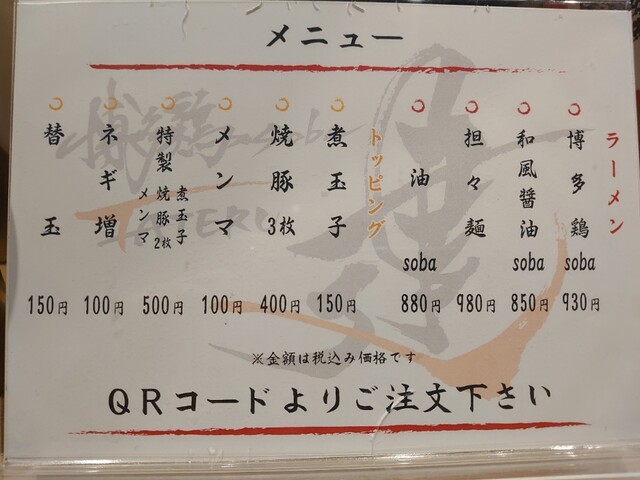 メニュー
ラーメン
博多鶏soba 930円
和風醤油soba 850円
担々麺 980円
油soba 880円
トッピング
煮玉子 150円
焼豚3枚 400円
メンマ 100円
特製 煮玉子 焼豚2枚 メンマ 500円
ネギ増 100円
替玉 150円
※金額は税込み価格です
QRコードよりご注文下さい